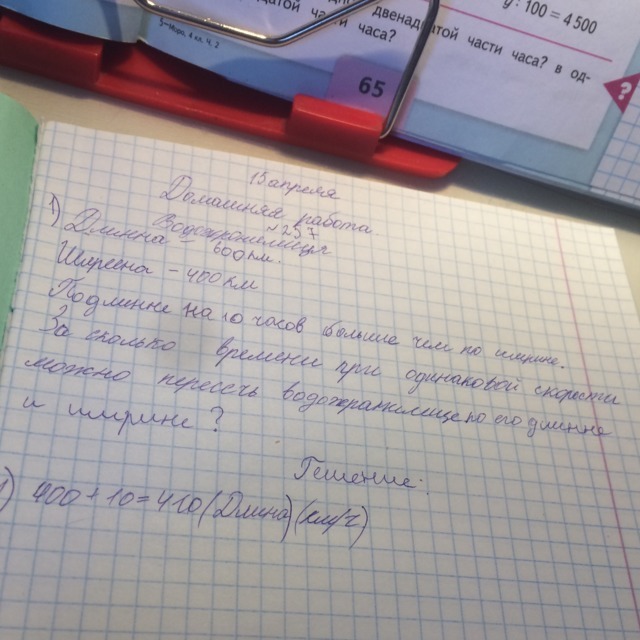 у : 100 = 4 500
двенадцатой части часа? в од-
датой части часа?
3–Моро, 4 кл. Ч. 2
65
?
15 апреля
Домашняя работа
№257
Водохранилище
1) Длина – 600 км.
Ширена – 400 км
По длинне на 10 часов больше чем по ширине.
За сколько времени при одинаковой скорости
можно пересечь водохранилище по его длинне
и ширине?
Решение:
1) 400 + 10 = 410 (Длина) (км/ч)